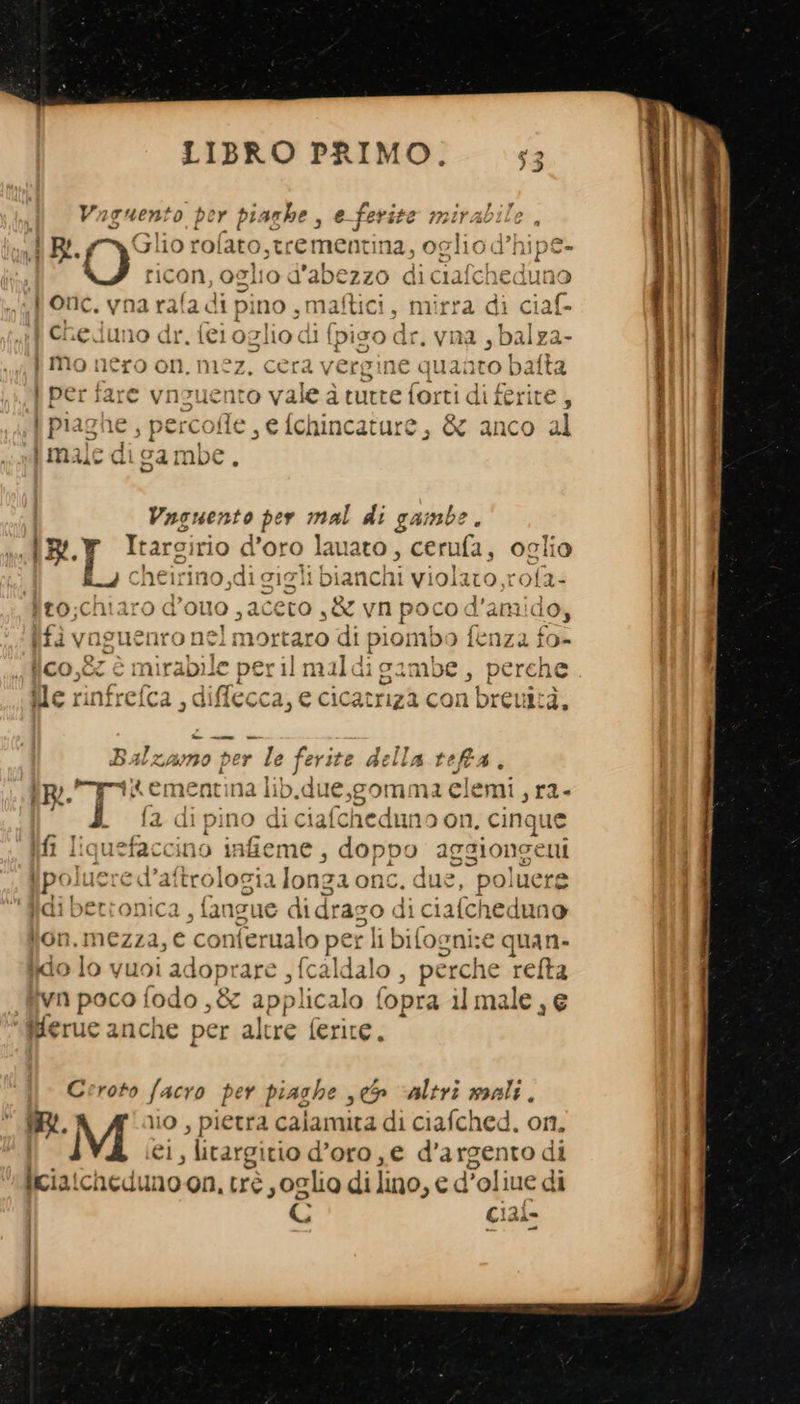 LIBRO PRIMO. 53
Vnguento per piaghe, e ferite mirabile.
℞. OGlio roſato, trementina, oglio d'hipe-
ricon, oglio d'abezzo di ciaſcheduno
onc. vna raſa di pino, maſtici, mirra di ciaſ-
cheduno dr. ſei oglio di ſpigo dr. vna, balza-
mo nero on. mez. cera vergine quanto baſta
per fare vnguento vale à tutte ſorti di ferite,
piaghe, percoſſe, e ſchincature, & anco al
male di gambe.
Vnguento per mal di gambe.
℞. LItargirio d'oro lauato, ceruſa, oglio
cheirino, di gigli bianchi violato, roſa-
to, chiaro d'ouo, aceto, & vn poco d'amido,
fà vnguento nel mortaro di piombo ſenza fo-
co, & è mirabile per il mal di gambe, perche
le rinfreſca, diſſecca, e cicatriza con breuità.
Balzamo per le ferite della teſta.
℞. TRementina lib. due, gomma elemi, ra-
ſa di pino di ciaſcheduno on. cinque
ſi liquefaccino inſieme, doppo aggiongeui
poluere d'aſtrologia longa onc. due, poluere
di bettonica, ſangue di drago di ciaſcheduno
on. mezza, e conſerualo per li biſogni: e quan-
do lo vuoi adoprare, ſcaldalo, perche reſta
vn poco ſodo, & applicalo ſopra il male, e
ſerue anche per altre ferite.
Ceroto ſacro per piaghe, & altri mali.
℞. MInio, pietra calamita di ciaſched. on.
ſei, litargirio d'oro, e d'argento di
ciaſcheduno on. trè, oglio di lino, e d'oliue di
C ciaſ-